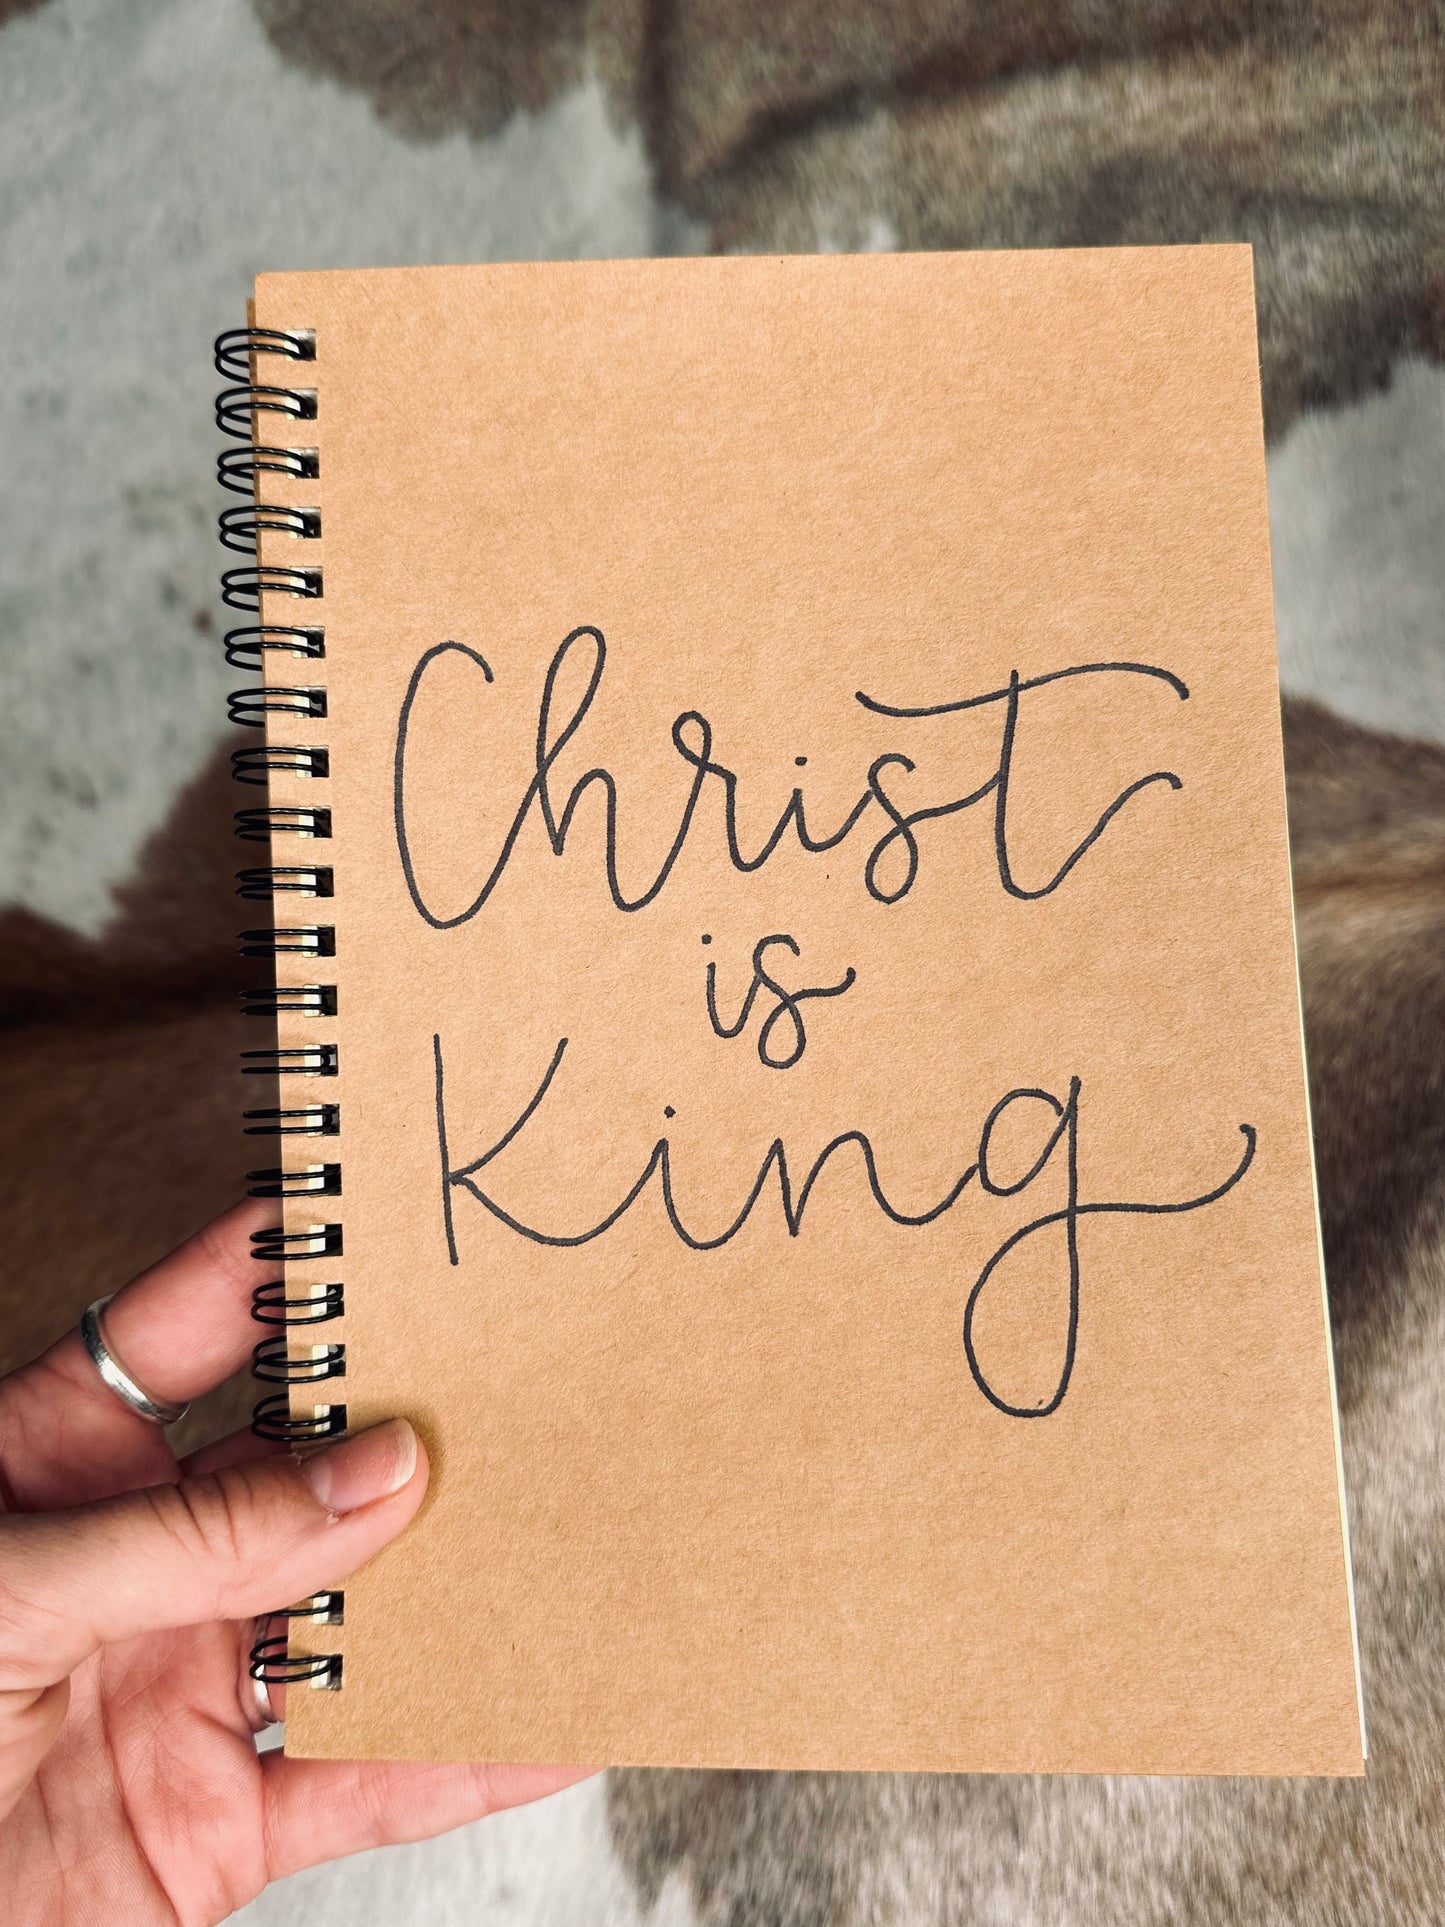 Christ
is
King